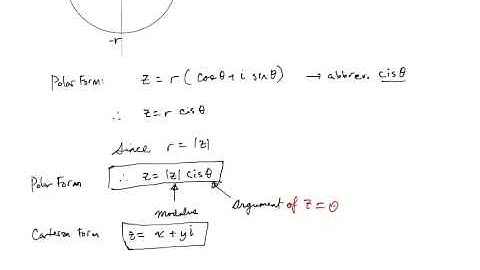 -r
Polar Form: z = r ( cosθ + i sinθ ) → abbrev. cisθ
∴ z = r cisθ
Since r = |z|
Polar Form ∴ z = |z| cisθ
modulus argument of z = θ
Cartesan form z = x + yi